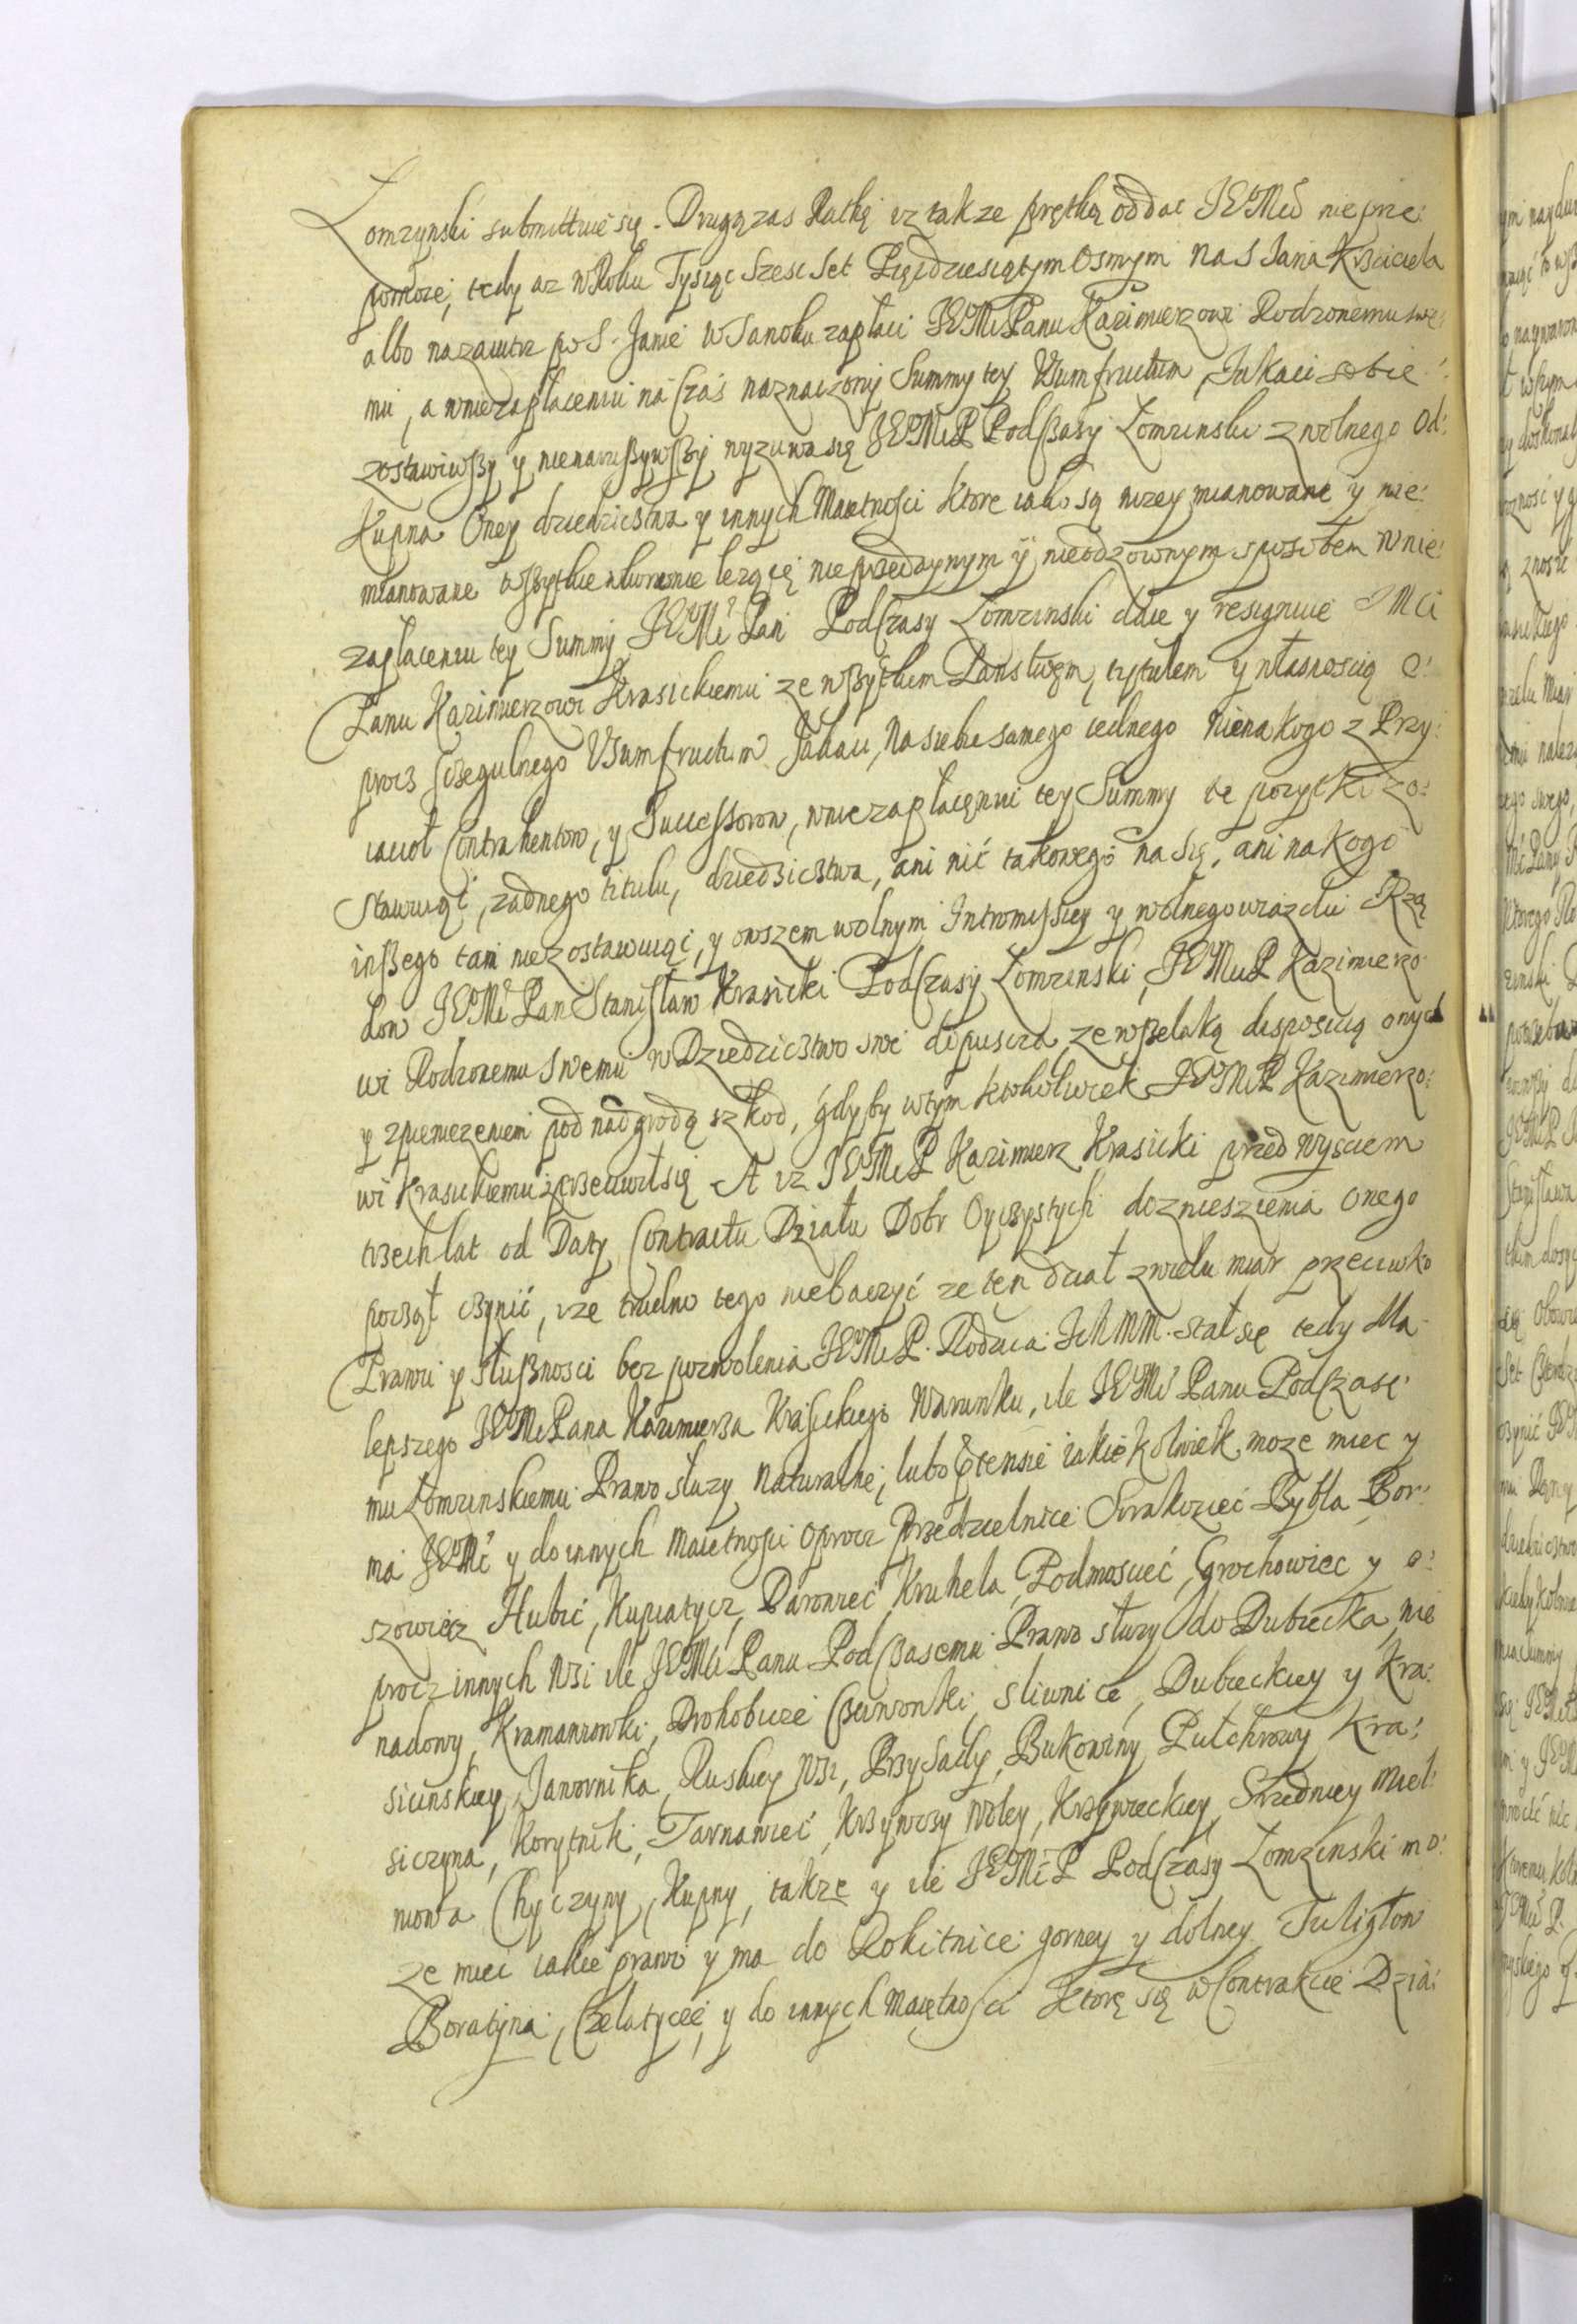 Łomzynski submittuie się. Drugą zas Ratką iz takze prętką oddac JEoMći nieprze:
pomoze, tedy az w Roku Tysiąc Szesc Set Pięcdziesiątym Osmym na S Jana Krzciciela
albo nazaiutrz po S. Janie w Sanoku zapłaci JEoMći Panu Kazimierzowi Rodzonemu swe:
mu, a w niezapłaceniu na Czas naznaczony Summy tey Usumfructum Jakaci sobie
zostawiwszy y nienaruszywszy wyzuwa się JEoMći P Podczaszy Łomzinski z wolnego Od:
kupna Oney dziedzictwa y innych Maiętnosci ktore iako są nizey mianowane y nie:
mianowane wszytkie lezące nieprzedaynym y nieodzownym sposobem w nie:
zapłaceniu tey Summy JEoMć Pan Podczaszy Łomzinski daie y resignuie JMći
Panu Kazimierzowi Krasickiemu ze wszytkim Panstwem, tytułem y własnoscią o:
procz sczegulnego Usumfructum Jakaci, na siebie samego iednego nie na kogo z Przy:
iacioł Contrahentow, y Successorow, w niezapłaceniu tey Summy te pozytki zo:
stawuiąc, zadnego titulu, dziedzictwa, ani nic takowego na się, ani na kogo
inszego tam nie zostawuiąc, y owszem wolnym Intromissiey y wolnego wiazdu Rzą
dow JEoMć Pan Stanisław Krasicki Podczaszy Łomzinski, JEoMći P Kazimierzo
wi Rodzonemu Swemu w Dziedzictwo swe dopuscza, ze wszelaką disposicią onych
y zpieniezeniem pod nadgrodą szkod, gdyby wtym ktokolwiek JEoMći P Kazimierzo:
wi Krasickiemu przeciwił się A iz JEoMć P Kazimierz Krasicki przed wysciem
trzech lat od Daty Contractu Działu Dobr Oyczystych do zniesienia onego
począł czynić, ize trudno tego niebaczyć ze ten dział z wielu miar przeciwko
Prawu y słusznosci bez pozwolenia JEoMći P. Rodzica Ich MM. stał się tedy dla
lepszego JEoMći Pana Kazimierza Krasickiego Warunku, ile JEoMći Panu Podczasze:
mu Łomzinskiemu Prawo słuzy Naturalne, lubo Ptensie iakiekolwiek moze miec y
ma JEoMć y do innych Maiętnosci oprocz przedzielnice Surakowiec Bybła Bor:
szowicz Hubic, Kupiatycz, Darowiec Kruhela, Podmosciec, Grochowiec y o:
procz innych Wsi ile JEoMći Panu Podczasemu Prawo słuzy do Dubiecka, nie
nadowy, Kramarzowki, Drohobucze Piwonki, Sliwnice, Dubieckiey y Kra:
sicinskiey, Janownika, Ruskiey Wsi, Przysady, Bukowiny Putchrowy Kra:
siczyna, Korytnik, Tarnawiec, Krzywczy Woley, Krzywieckiey, Sredniey Miel:
nowa Chyczyny, Kupny, takze y ile JEoMć P Podczaszy Łomzinski mo:
ze miec iakie prawo y ma do Rokitnice gorney y dolney Tuligłow
Boratyna, Czelatycze, y do innych maiętnosci ktore się w Contrakcie Dzia: